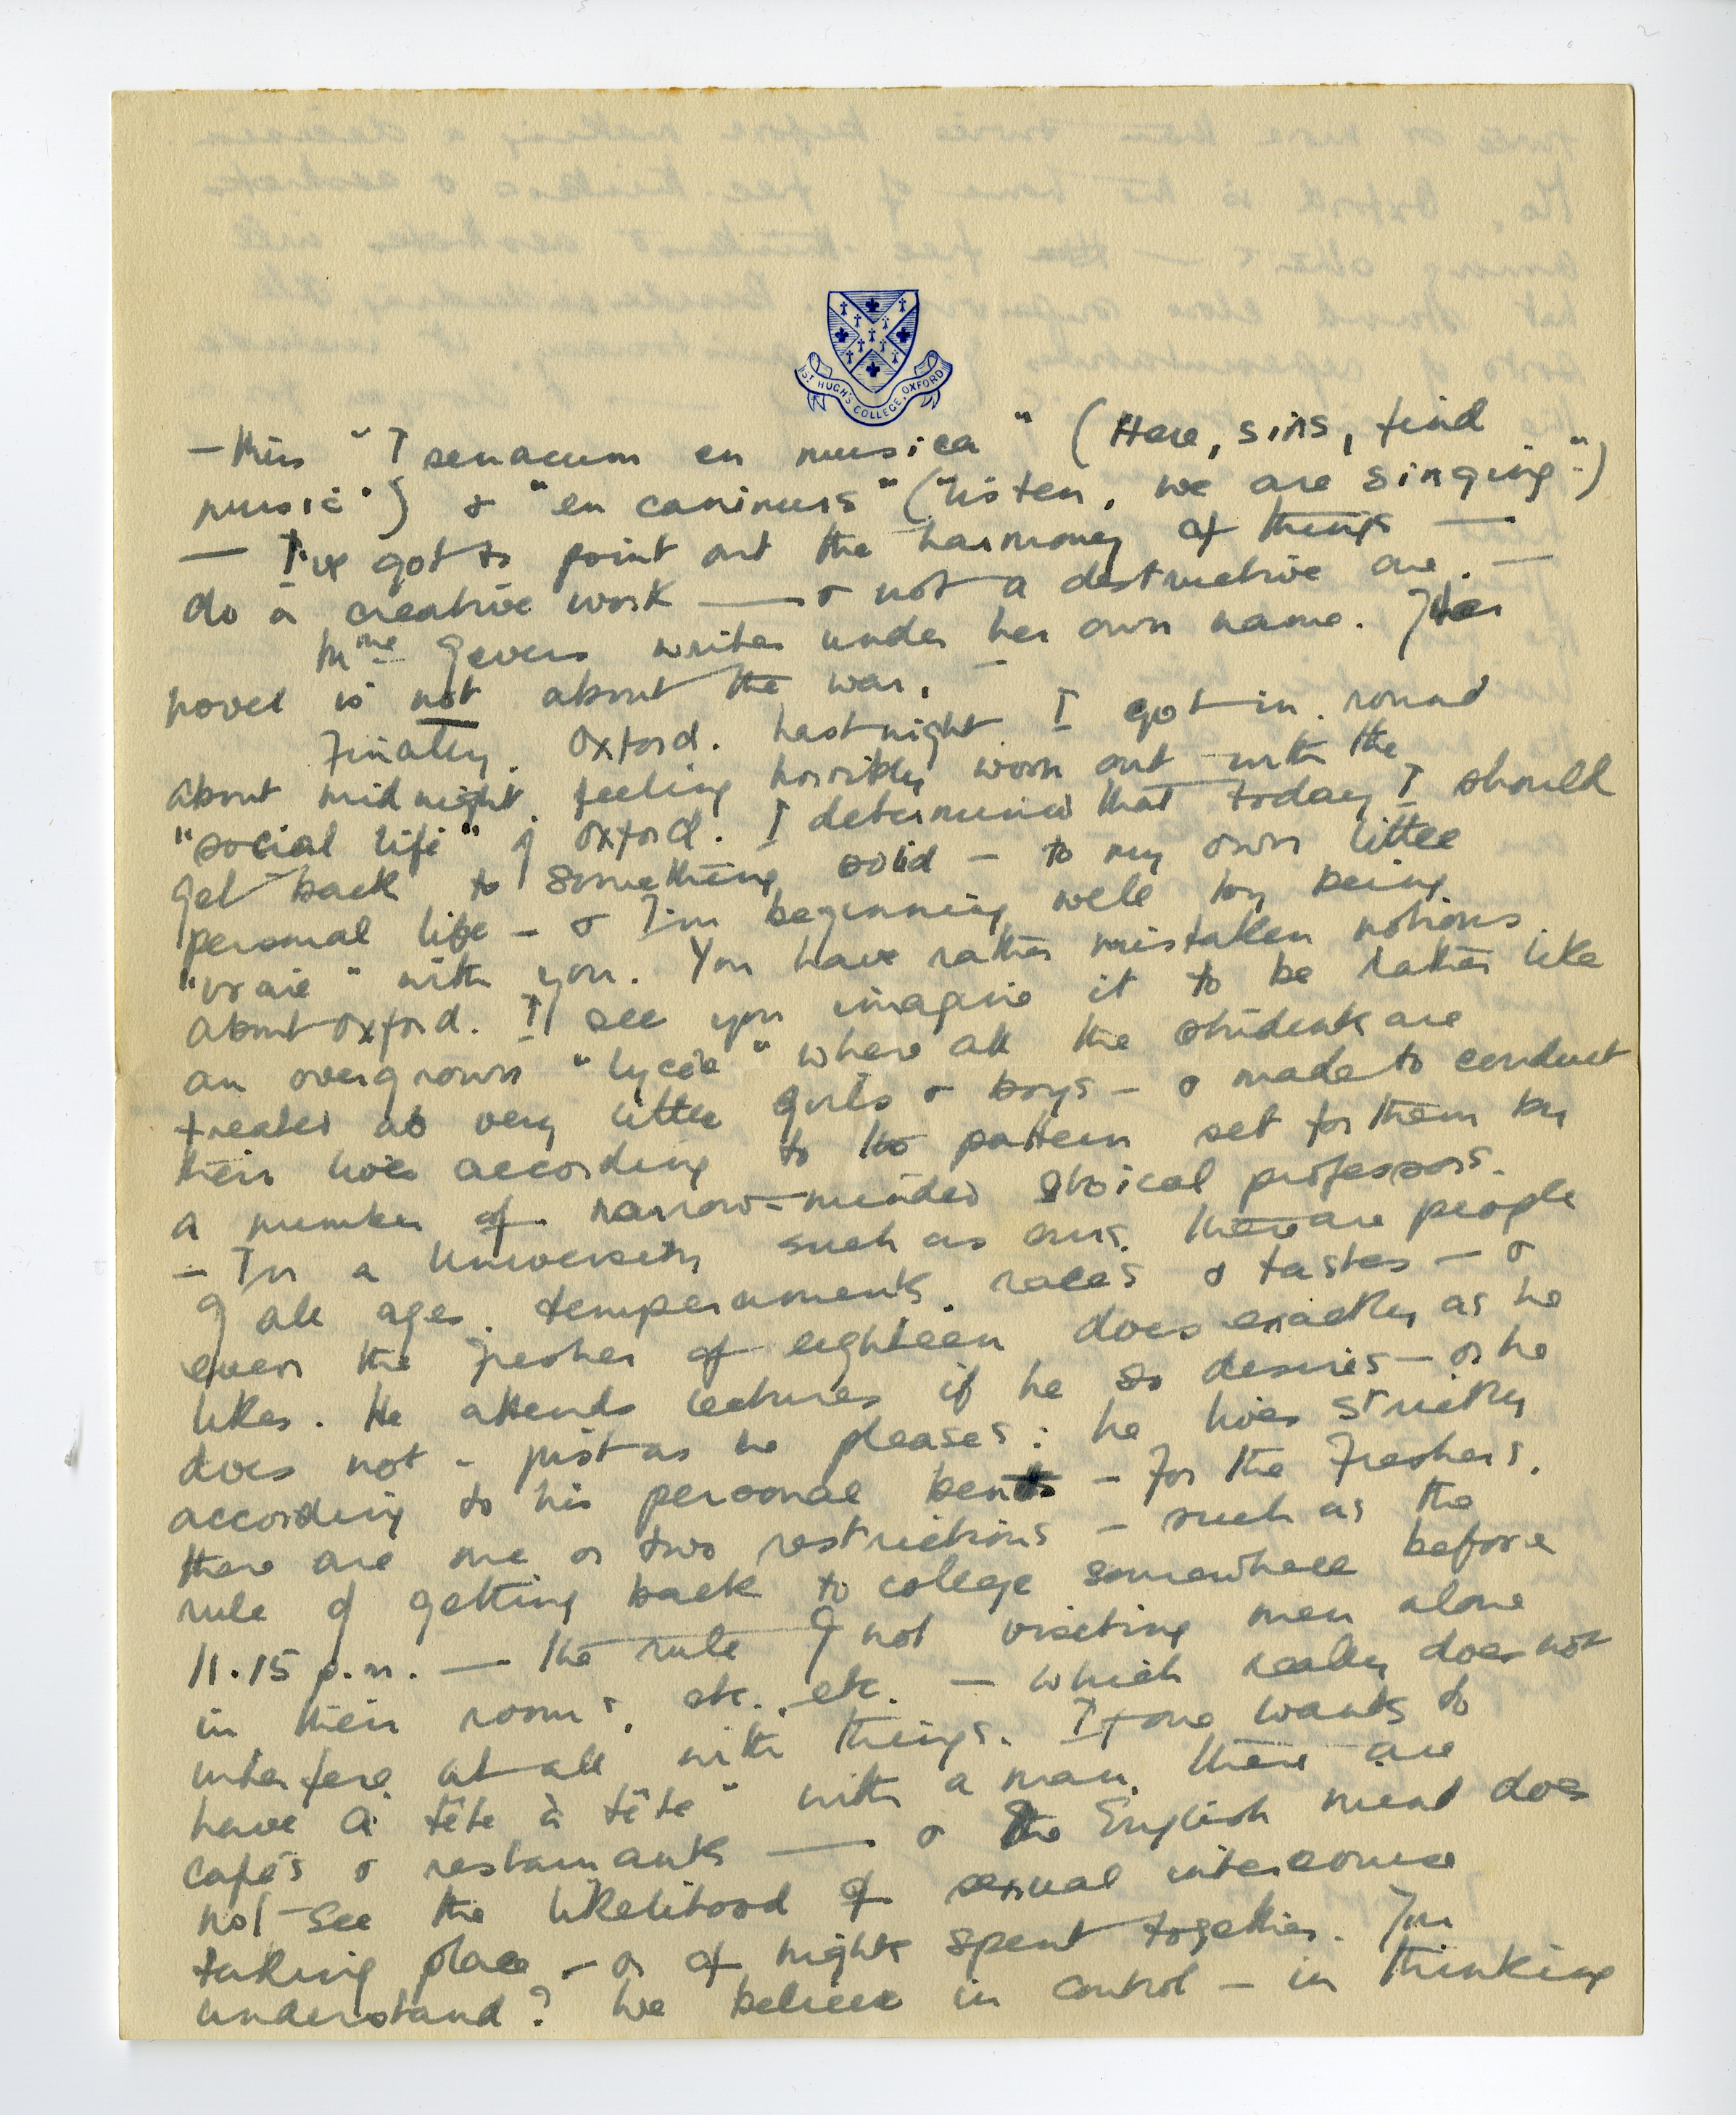 ST HUGH'S COLLEGE, OXFORD
— this "Tsenacum en musica" (Here, sirs, find
music") & "en canimus" ("listen, we are singing".)
— I've got to point out the harmony of things —
do a creative work — & not a destructive one. —
Mme Gevers writes under her own name. Her
novel is not about the war. —
Finally. Oxford. Last night I got in round
about midnight, feeling horribly worn out with the
"social life" of Oxford. I determined that today I should
get back to something solid — to my own little
personal life — & I'm beginning well by being
"vraie" with you. You have rather mistaken notions
about Oxford. I see you imagine it to be rather like
an overgrown "lycée" where all the students are
treated as very little girls & boys — & made to conduct
their lives according to the pattern set for them by
a number of narrow-minded stoical professors.
— In a University such as ours, there are people
of all ages, temperaments, races & tastes — &
even the Fresher of eighteen does exactly as he
likes. He attends lectures if he so desires — or he
does not — just as he pleases: he lives strictly
according to his personal bent — For the Freshers,
there are one or two restrictions — such as the
rule of getting back to college somewhere before
11.15 p.m. — the rule of not visiting men alone
in their rooms, etc., etc. — which really does not
interfere at all with things. If one wants to
have a "tête à tête" with a man, there are
cafés & restaurants — & the English mind does
not see the likelihood of sexual intercourse
taking place — or of nights spent together. You
understand? We believe in control — in thinking